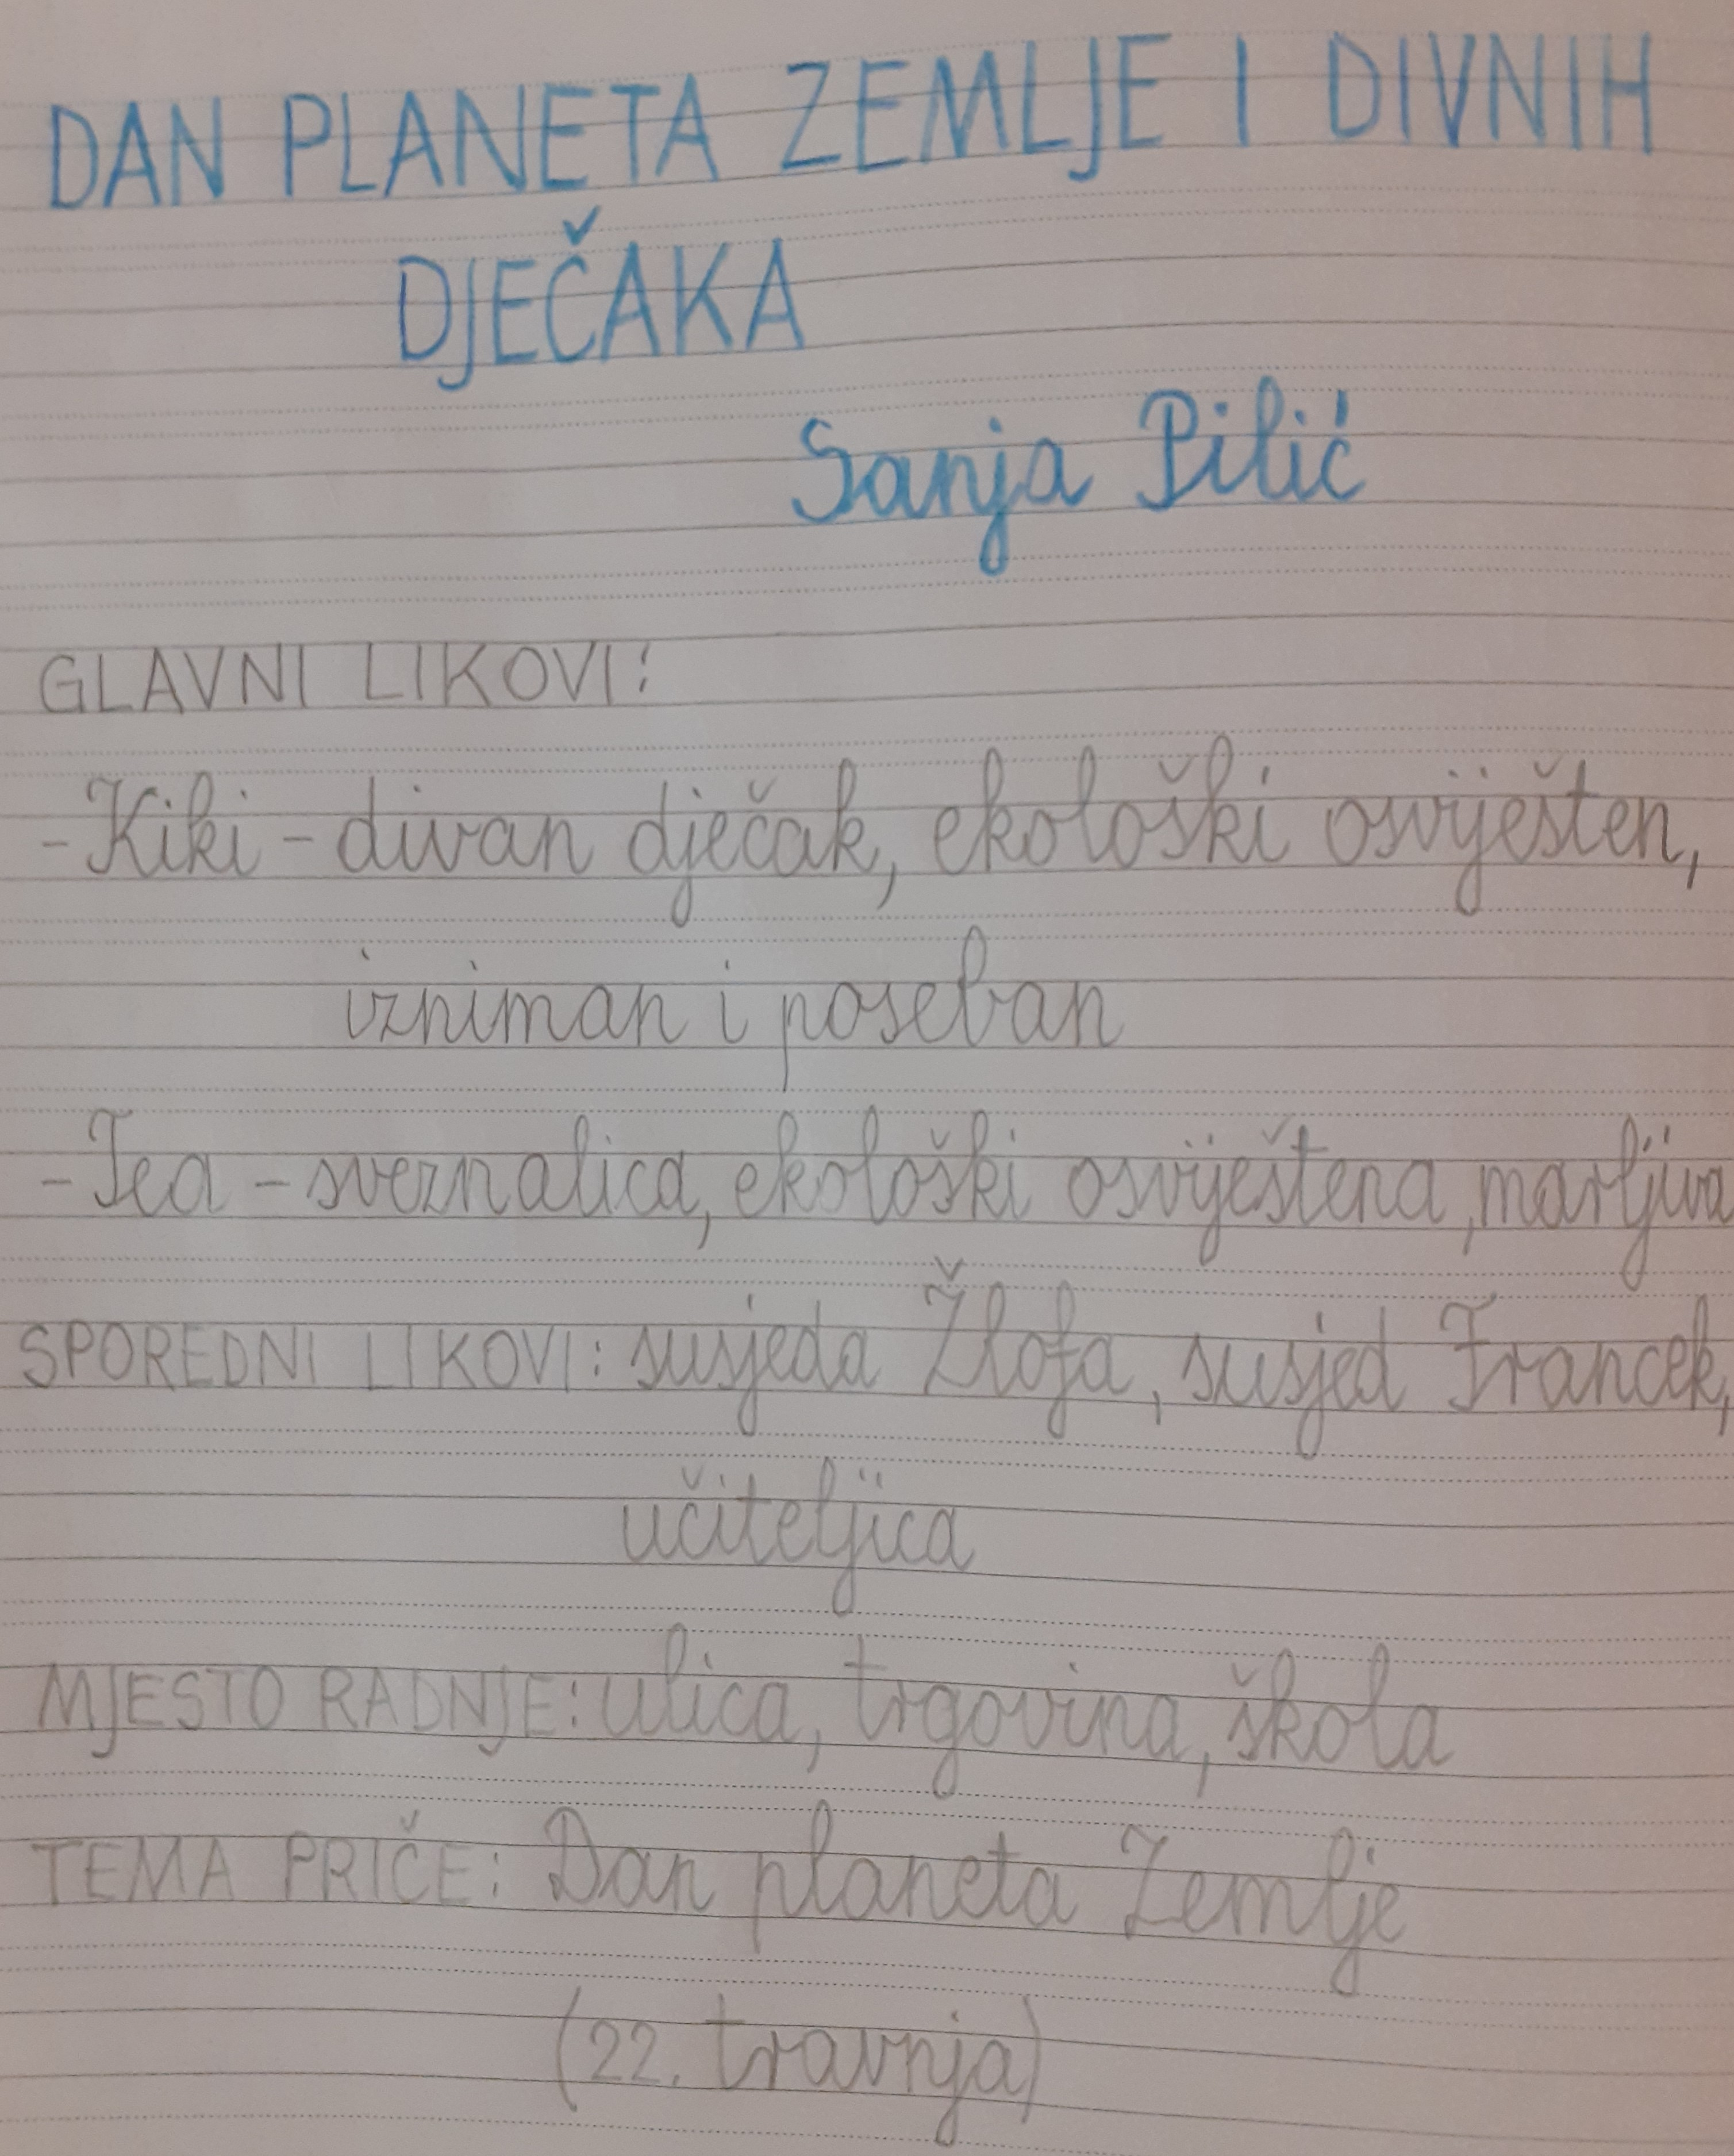 DAN PLANETA ZEMLJE I DIVNIH
DJEČAKA
Sanja Pilić
GLAVNI LIKOVI:
-Kiki - divan dječak, ekološki osviješten,
izniman i poseban
-Tea - sveznalica, ekološki osviještena, marljiva
SPOREDNI LIKOVI: susjeda Žlofa, susjed Francek,
učiteljica
MJESTO RADNJE: ulica, trgovina, škola
TEMA PRIČE: Dan planeta Zemlje
(22. travnja)